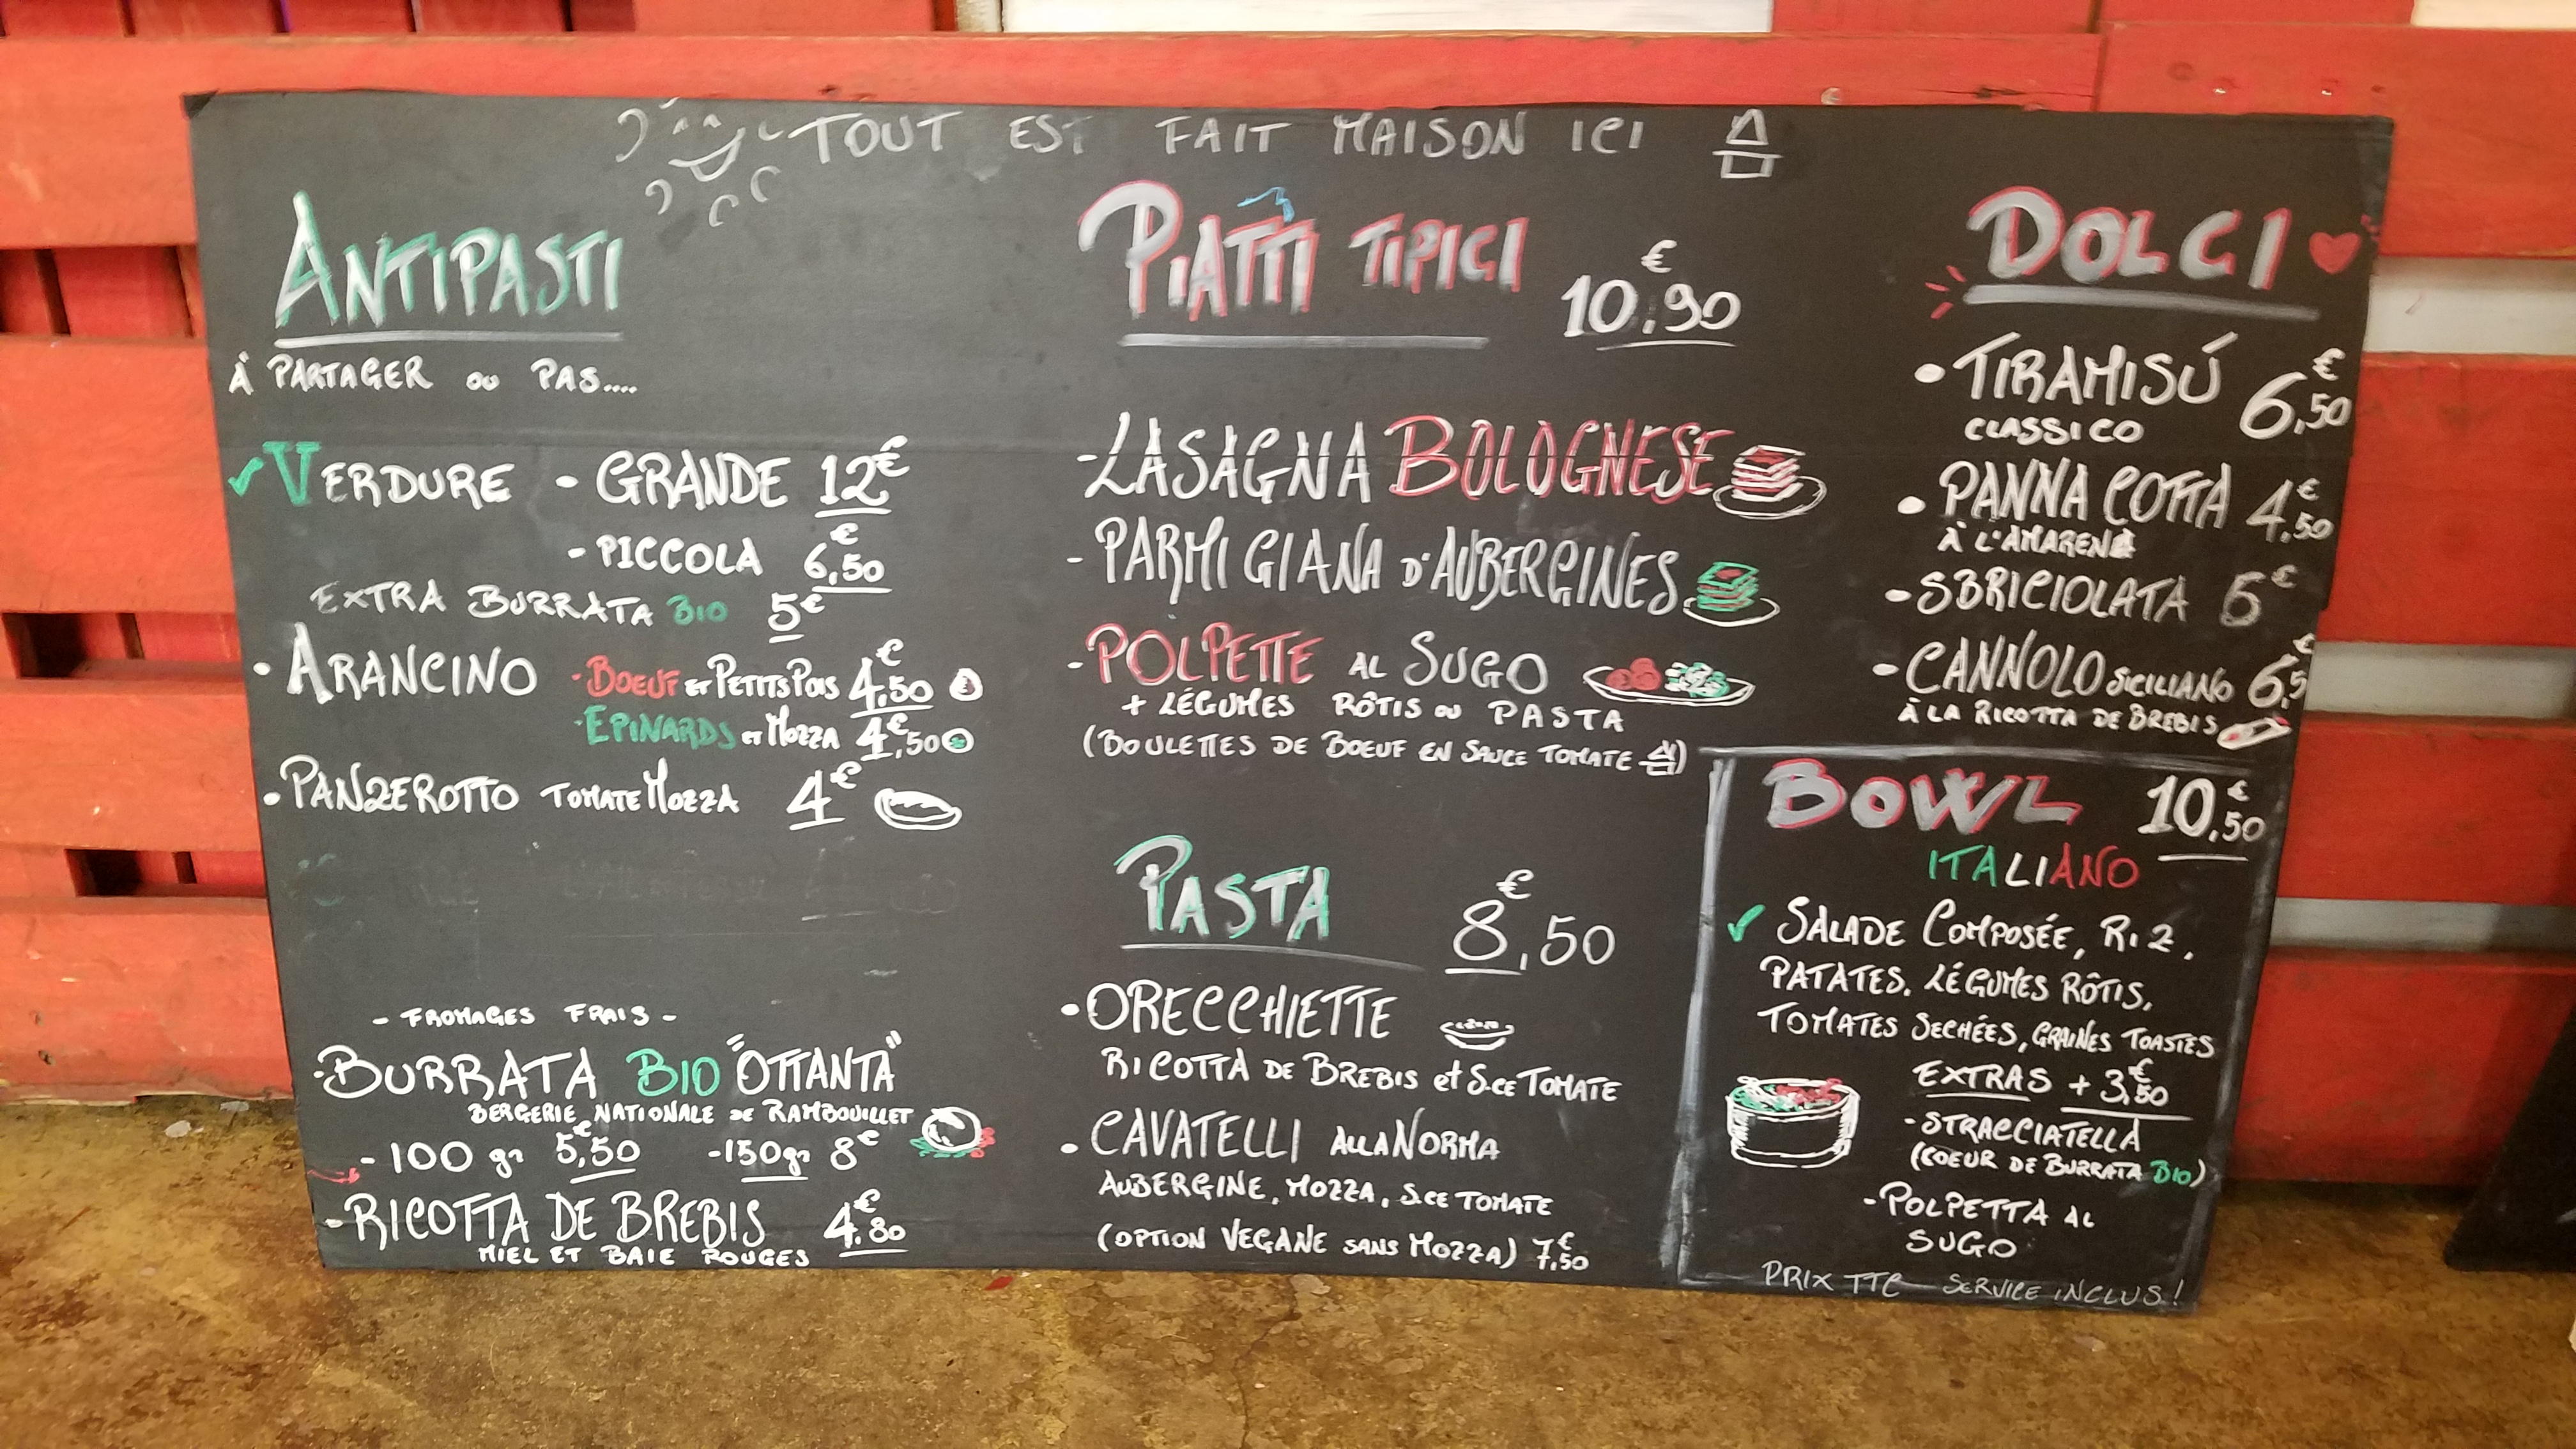 TOUT EST FAIT MAISON ICI
ANTIPASTI
À PARTAGER OU PAS....
VERDURE - GRANDE 12€
- PICCOLA 6,50€
EXTRA BURRATA BIO 5€
• ARANCINO - BOEUF ET PETITS POIS 4,50€
- EPINARDS ET MOZZA 4€,50
• PANZEROTTO TOMATE MOZZA 4€
- FROMAGES FRAIS -
- BURRATA BIO "OTTANTA"
BERGERIE NATIONALE DE RAMBOUILLET
- 100 gr 5€,50 - 150 gr 8€
- RICOTTA DE BREBIS 4€,80
MIEL ET BAIE ROUGES
PIATTI TIPICI 10€,90
- LASAGNA BOLOGNESE
- PARMIGIANA D'AUBERGINES
- POLPETTE AL SUGO
+ LÉGUMES RÔTIS OU PASTA
(BOULETTES DE BOEUF EN SAUCE TOMATE)
PASTA 8€,50
• ORECCHIETTE
RICOTTA DE BREBIS et S.CE TOMATE
• CAVATELLI ALLA NORMA
AUBERGINE, MOZZA, S.CE TOMATE
(OPTION VEGANE SANS MOZZA) 7€,50
DOLCI
• TIRAMISÚ 6€,50
CLASSICO
• PANNA COTTA 4€,50
À L'AMARENA
- SBRICIOLATA 5€
- CANNOLO SICILIANO 6€,5
À LA RICOTTA DE BREBIS
BOWL 10€,50
ITALIANO
SALADE COMPOSÉE, RIZ,
PATATES, LÉGUMES RÔTIS,
TOMATES SECHÉES, GRAINES TOASTES
EXTRAS + 3€,50
- STRACCIATELLA
(COEUR DE BURRATA BIO)
- POLPETTA AL
SUGO
PRIX TTC SERVICE INCLUS!